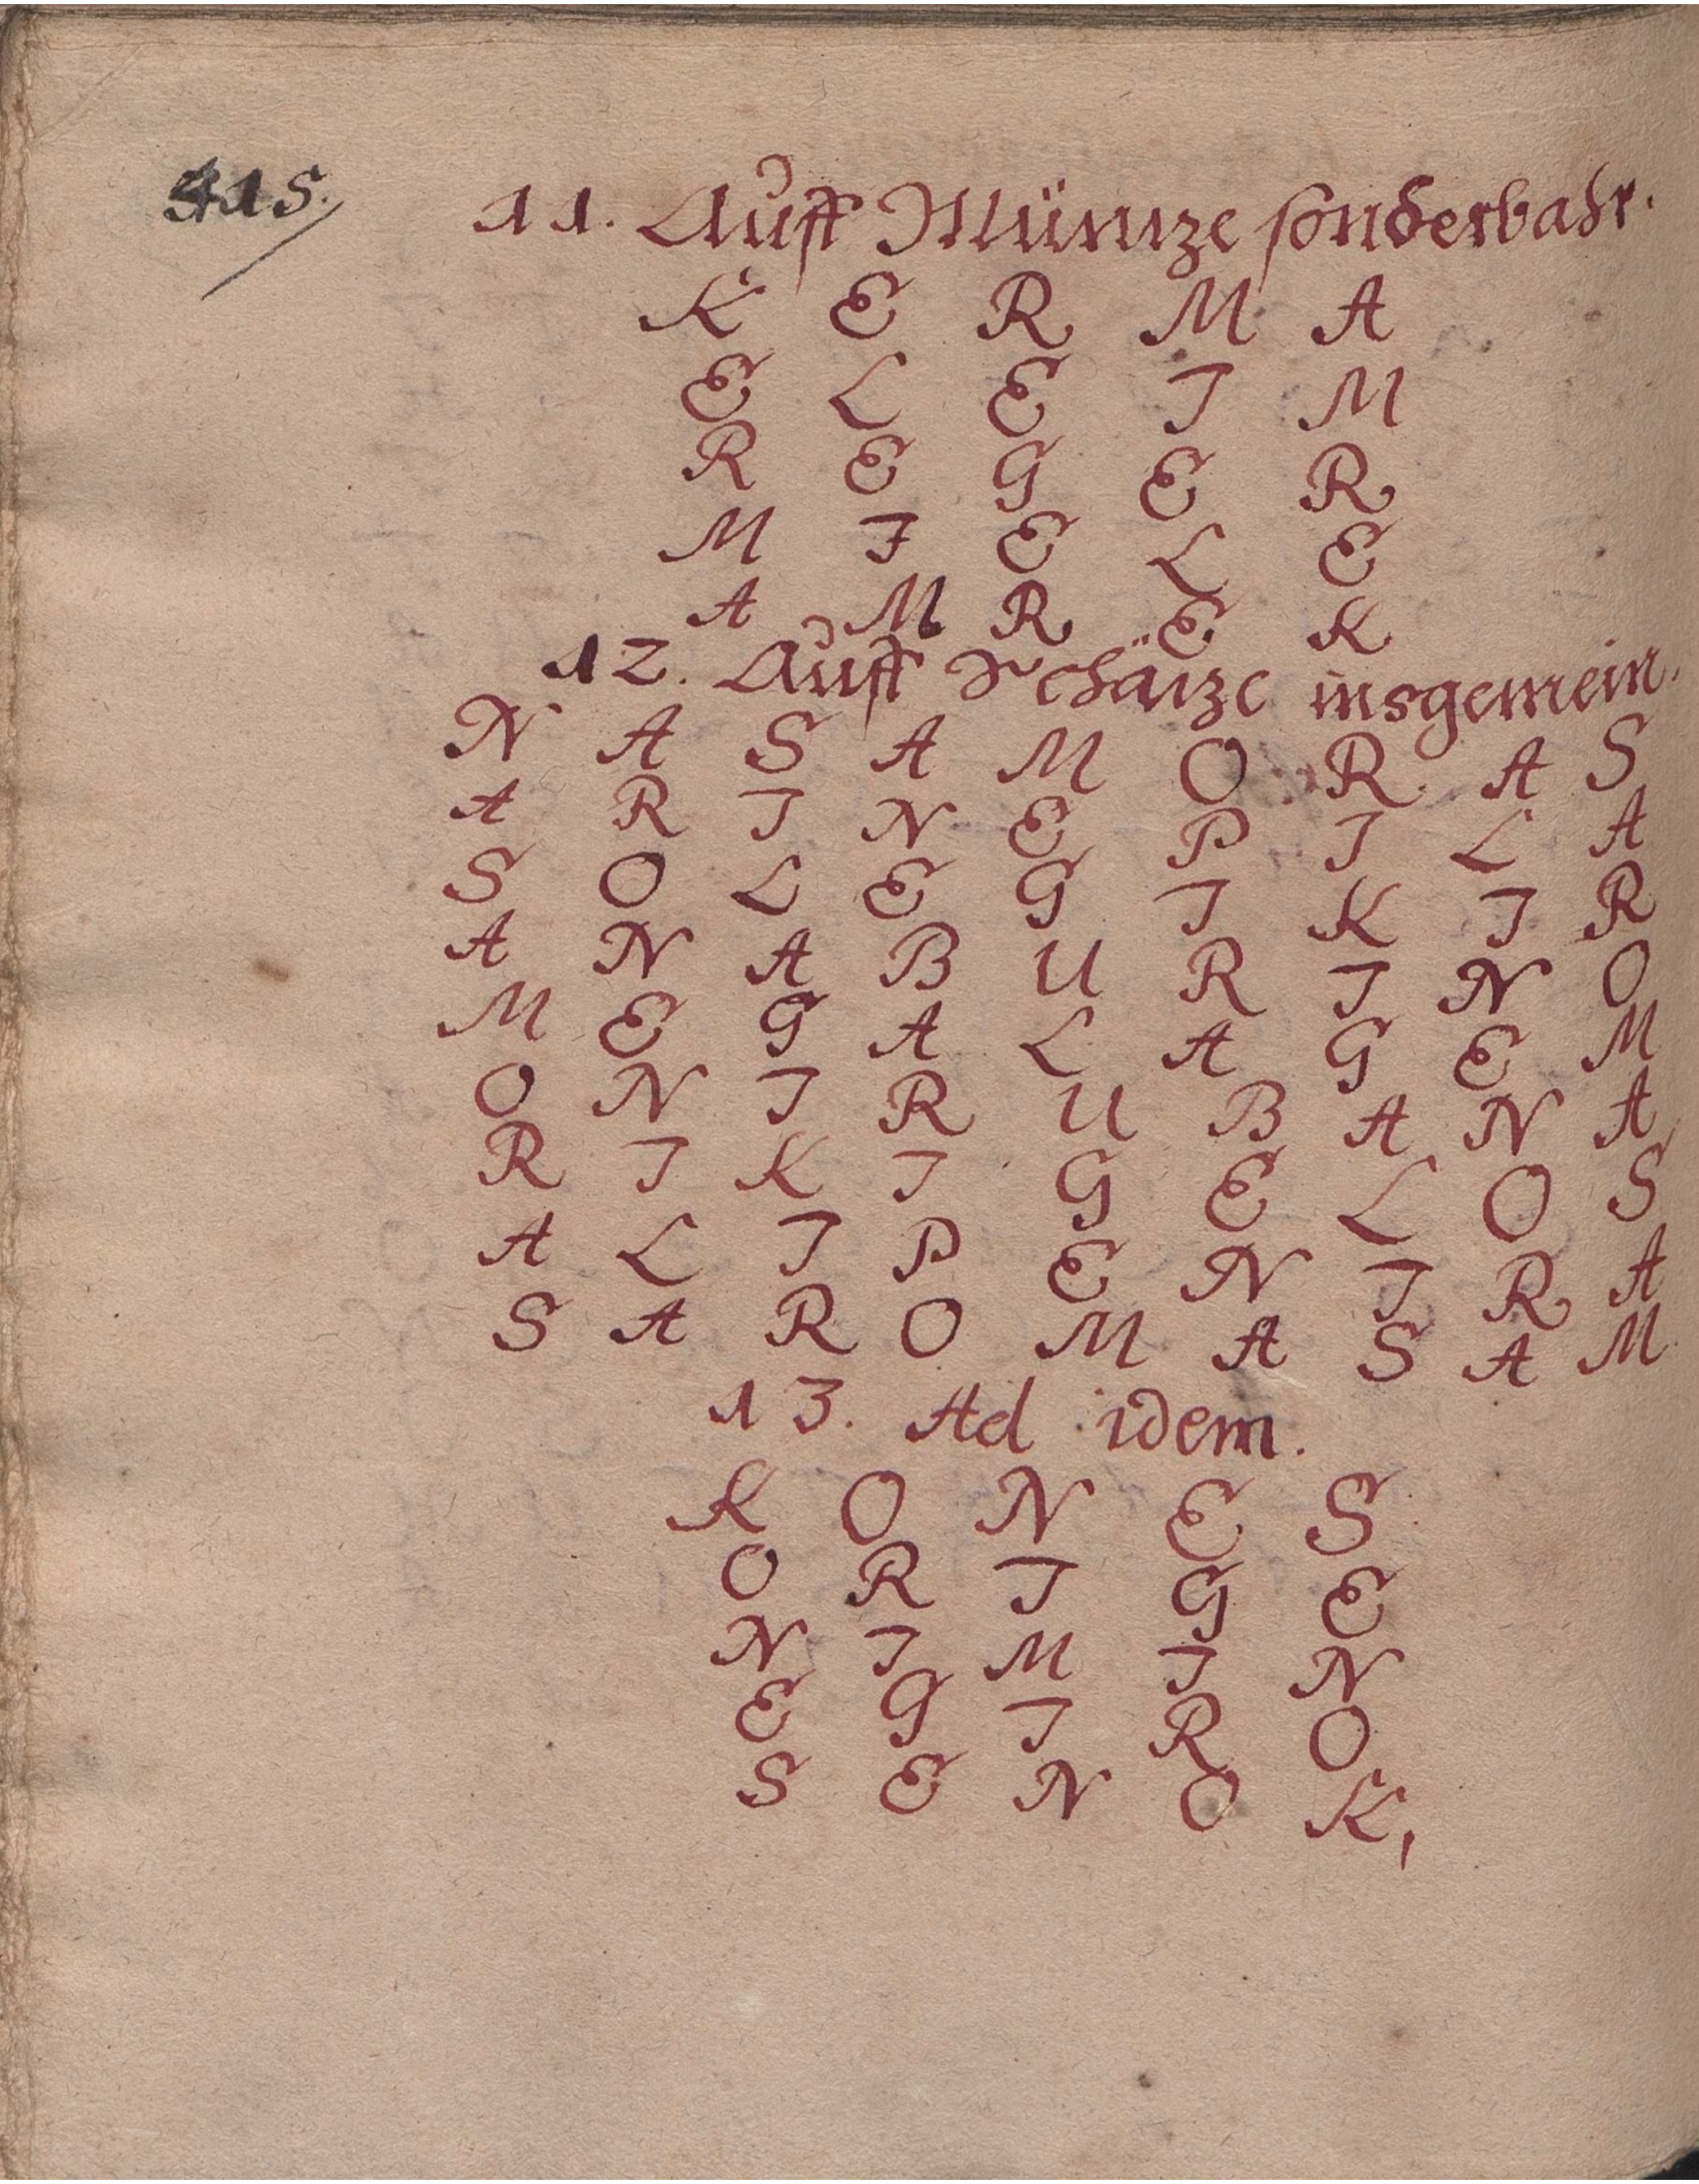 415.
11. Auff Müntze sonderbahr.
K E R M A
E L E I M
R E G E R
M I E L E
A M R E K
12. Auff Schätze insgemein.
N A S A M O R A S
A R I N E P I L A
S O L E G I K I R
A N A B U R I N O
M E G A L A G E M
O N I R U B A N A
R I K I G E L O S
A L I P E N I R A
S A R O M A S A M
13. Ad idem.
K O N E S
O R I G E
N I M I N
E G I R O
S E N O K,